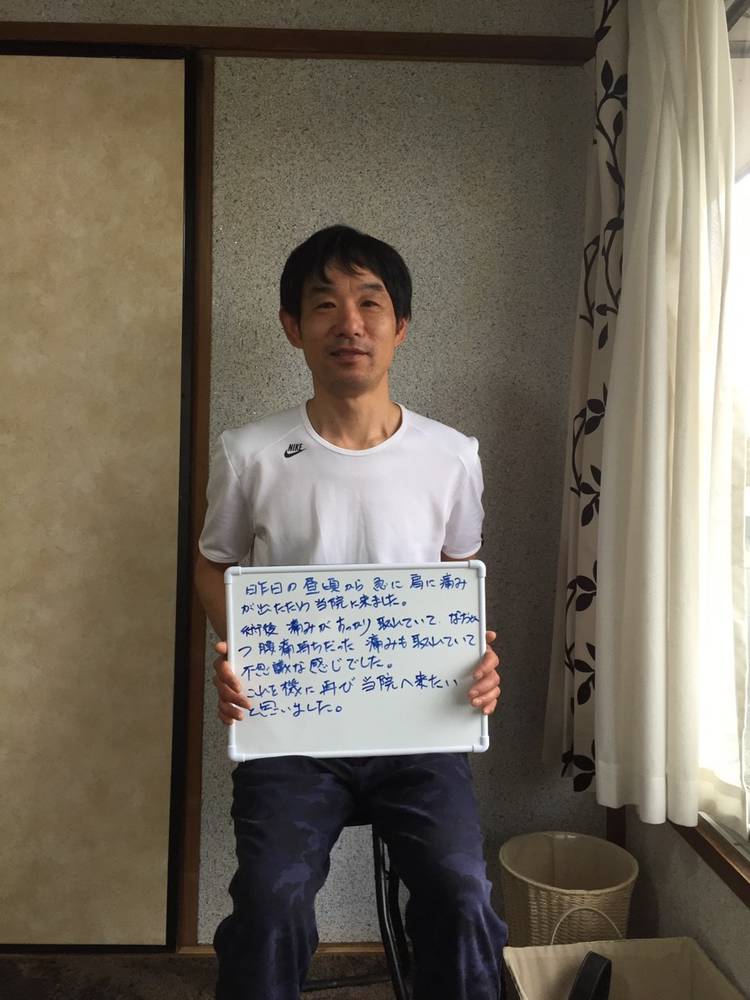 NIKE
昨日の昼頃から急に肩に痛み
が出たため当院に来ました。
術後 痛みがすっかり取れていて、
つ腰痛持ちだった 痛みも取れていて
不思議な感じでした。
これを機に再び当院へ来たい
と思いました。